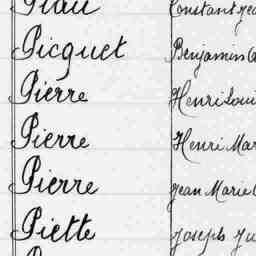 Piau Constant Jea
Picquet Benjamin
Pierre Henri Loui
Pierre Henri Mar
Pierre Jean Marie
Piette Joseph Ju